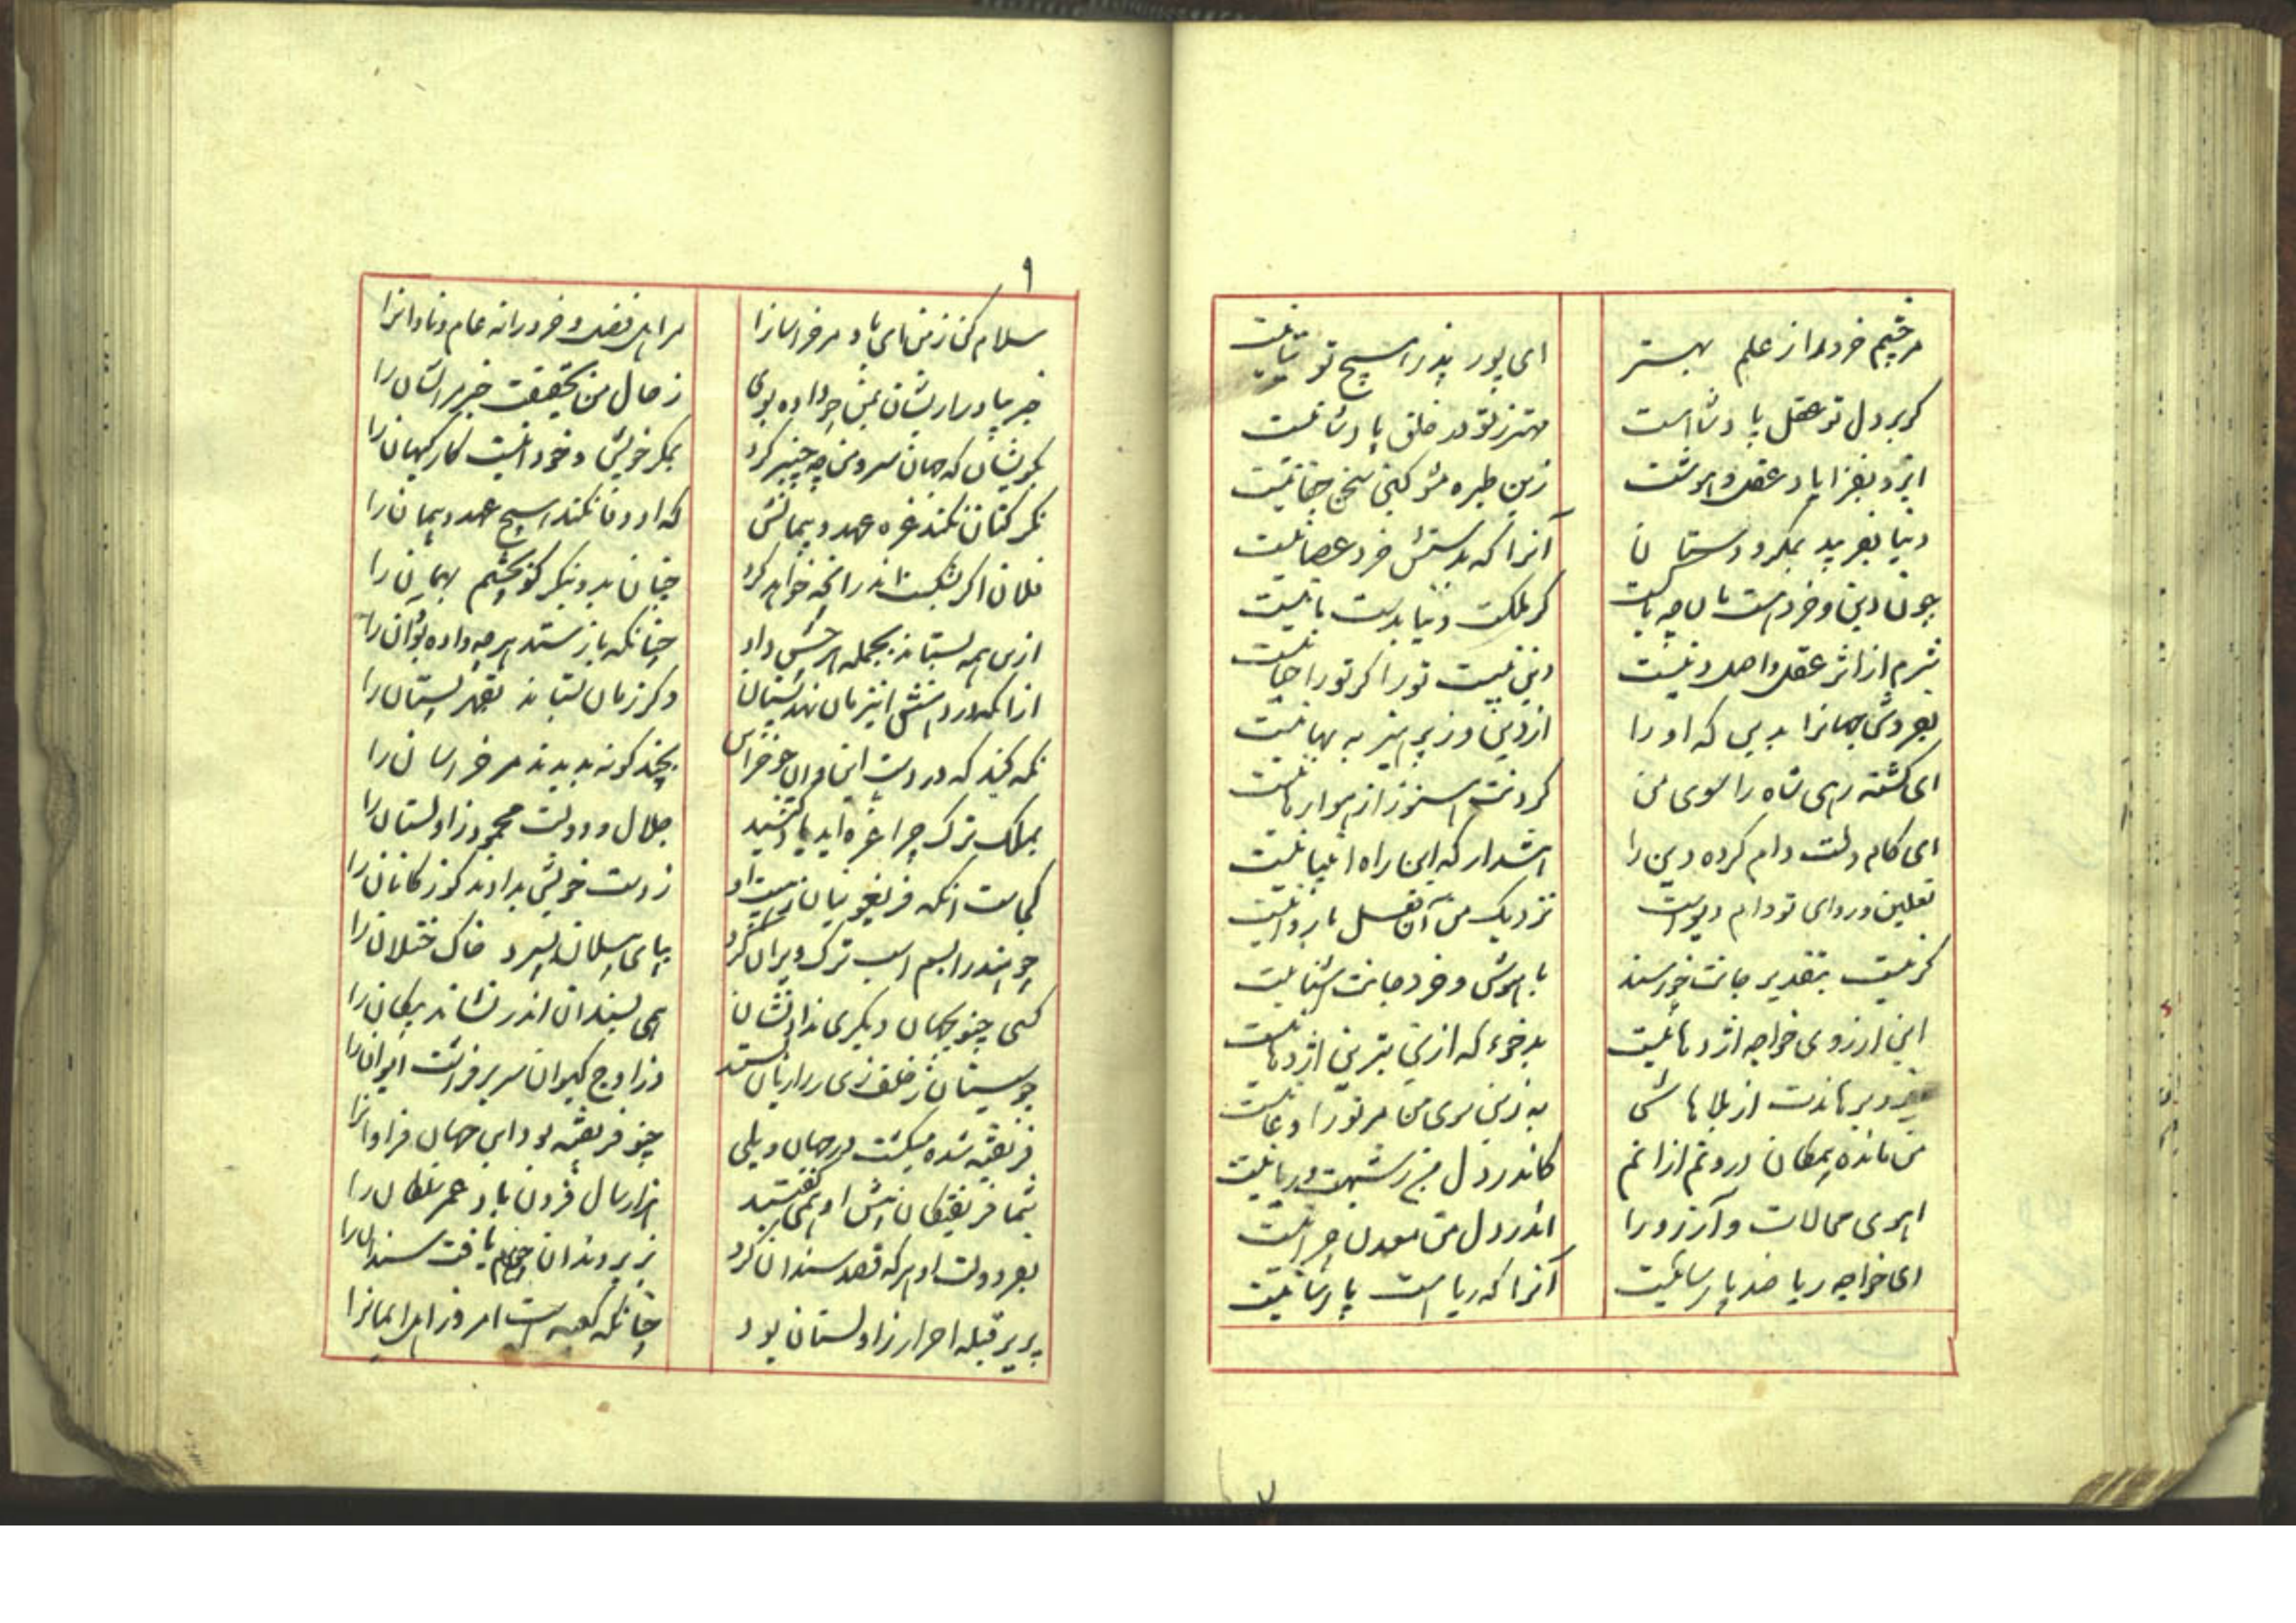 مر چشم خرد را از علم بهتر ای پور پدر را هیچ توتیا نیست
گر بر دل تو عقل پادشا است مهتر ز تو در خلق پادشا نیست
ایزد بفزایاد عقل و هوشت زین طیره مشو کین سخن جفا نیست
دنیا بفریبد بمکر و دستان آنرا که بدستش خرد عصا نیست
چون دین و خرد هست مان چه باکست گر ملکت دنیا بدست ما نیست
شرم از اثر عقل و اصل دینست دین نیست تو را گر تو را حیا نیست
بفروش جهانرا بدین که او را از دین و ز پرهیز به بها نیست
ای گشته رهی شاه را سوی من گردنت هنوز از هوا رها نیست
ای کام دلت دام کرده دین را هشدار که این راه انبیا نیست
نعلین و ردای تو دام دیو است نزدیک من آن نعل با ردا نیست
گر نیست بتقدیر جانت خرسند با هوش و خرد جانت آشنا نیست
این آرزوی خواجه اژدها نیست بدخو که ازین بترین اژدها نیست
ایزد برهاندت از بلا هاش به زین سوی من مر تورا دعا نیست
من مانده بیمکان درونم ازانم کاندر دل من ز شبهت و ریا نیست
اهوی محالات و آرزو را اندر دل من معدن چرا نیست
ای خواجه ریا ضد پارسائیست آنرا که ریا است پارسا نیست
۹
سلام کن ز من ای باد مر خراسانرا مر اهل فضل و خرد را نه عام و نادانرا
خبر بیاور ازیشان بمن چو داده بوی ز حال من بحقیقت خبر مر ایشان را
بگویشان که جهان سرو من چو چنبر کرد بمکر خویش و خود اینست کار گیهان را
نگر کتان نکند غره عهد و پیمانش که او وفا نکند هیچ عهد و پیمان را
فلان اگر بشکست اندر آنچه خواهد کرد جهان بدو بنگر گو بچشم بهمان را
ازین همه بستاند بجمله هر چش داد چنانکه باز ستد هر چه داده بود آن را
ازآنکه در دهنش این زمان نهد پستان دگر زمان بستاند بقهر پستان را
نگه کنید که در دست این و آن چو خراس بچند گونه بدیدند مر خراسان را
بملک ترک چرا غره اید یاد کنید جلال و دولت محمود زاولستان را
کجاست آنکه فریغونیان ز هیبت او ز دست خویش بدادند گوزگانان را
چو هند را بسم اسب ترک ویران کرد بپای پیلان بسپرد خاک ختلان را
کسی چنو بجهان دیگری نداد نشان همی بسندان اندر نشاند پیکان را
چو سیستان ز خلف ری ز رازیان بستد وز اوج کیوان سر بر فراشت ایوان را
فریفته شده میگشت در جهان و بلی چنو فریفته بود این جهان فراوانرا
شما فریفتگان پیش او همی گفتید هزار سال فزون باد عمر سلطان را
بفر دولت او هر که قصد سندان کرد بزیر دندان چون موم یافت سندان را
پریر قبله احرار زاولستان بود چنانکه کعبه است امروز اهل ایمانرا